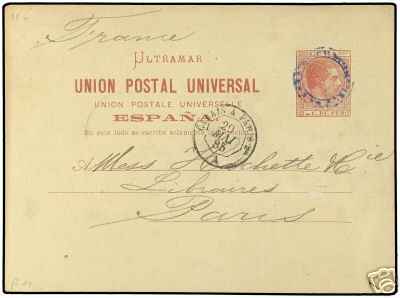 France
ULTRAMAR
UNION POSTAL UNIVERSAL
UNION POSTALE UNIVERSELLE
ESPAÑA
En este lado se escribe solamente
2 C. DE PESO
CALAIS A PARIS
20
MAI
A
A Mess Hachette & Cie
Libraires
Paris